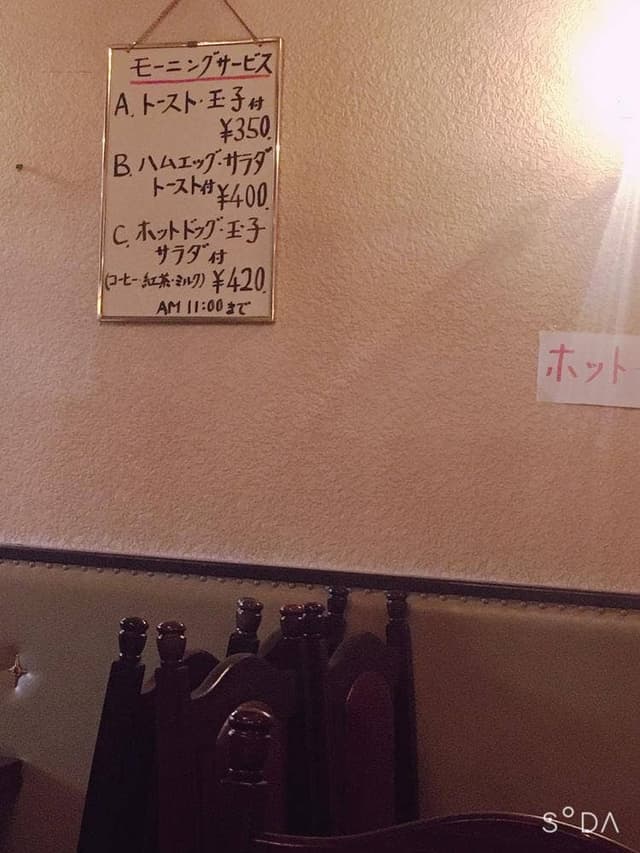 モーニングサービス
A. トースト・玉子付
¥350.
B. ハムエッグ・サラダ
トースト付 ¥400.
C. ホットドッグ・玉子
サラダ付
(コーヒー・紅茶・ミルク) ¥420.
AM 11:00まで
ホット
SODA